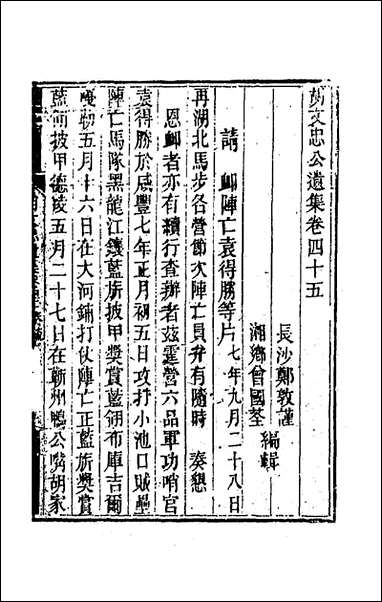 胡文忠公遺集卷四十五
長沙鄭敦謹
湘鄉曾國荃
編輯
請卹陣亡袁得勝等片七年九月二十八日
再湖北馬步各營節次陣亡員弁有隨時 奏懇
恩卹者亦有續行查辦者茲霆營六品軍功哨官
袁得勝於咸豐七年正月初五日攻打小池口賊壘
陣亡馬隊黑龍江鑲藍旂披甲獎賞藍翎布庫吉爾
嘎勒五月十六日在大河鋪打仗陣亡正藍旂獎賞
藍翎披甲德淩五月二十七日在蘄州鴨公嘴胡家